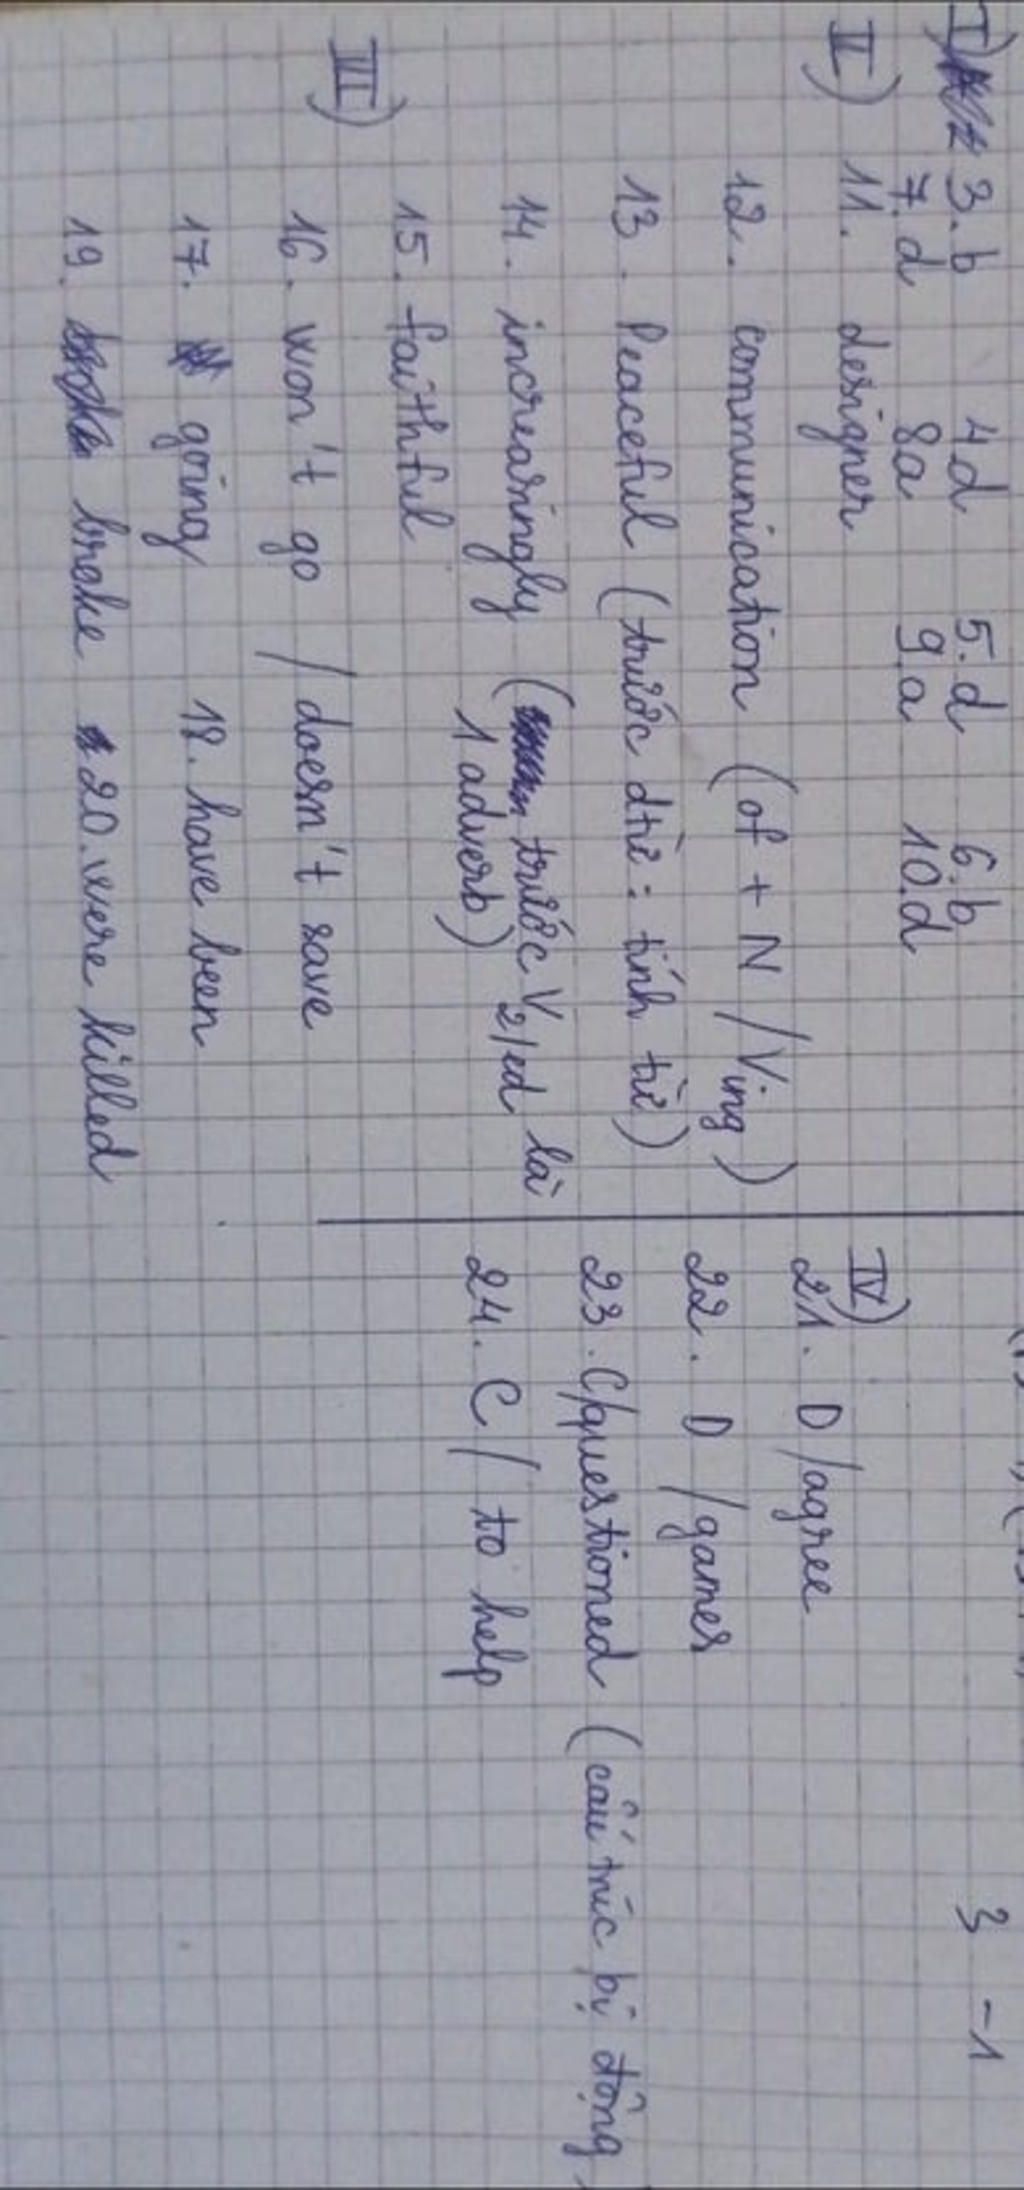 I) 3.b 4d 5.d 6.b
7.d 8a 9.a 10.d
II) 11. designer
12. communication (of + N / Ving)
13. Peaceful (trước dtừ = tính từ)
14. increasingly (trước V2/ed là
1 adverb)
15. faithful
III)
16. won't go / doesn't save
17. going 18. have been
19. broke 20. were killed
IV)
21. D /agree
22. D /games
23. C/questioned (cấu trúc bị động)
24. C / to help
3 -1